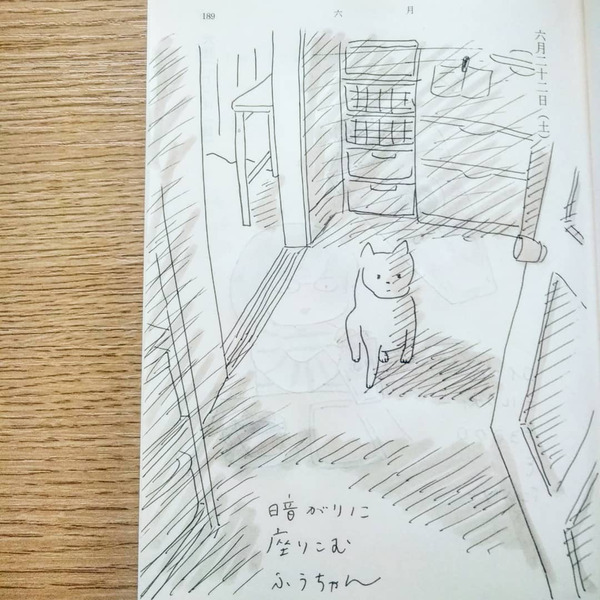 189
六月
六月二十二日(土)
暗がりに
座りこむ
ふうちゃん